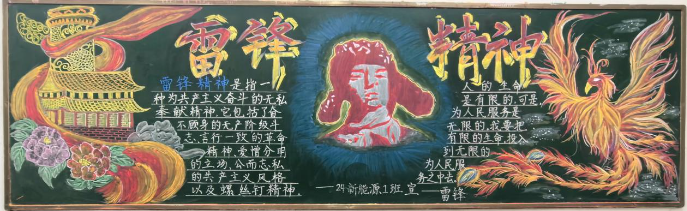 雷锋精神
雷锋精神是指一
种为共产主义奋斗的无私
奉献精神,它包括了奋
不顾身的无产阶级斗
志、言行一致的革命
精神、爱憎分明
的立场、公而忘私
的共产主义风格
以及螺丝钉精神.
——24新能源1班.宣
人的生命
是有限的,可是
为人民服务是
无限的,我要把
有限的生命,投入
到无限的
为人民服
务之中去.
——雷锋